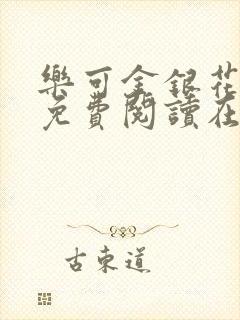 樂可金銀花
免費閱讀在
古東道